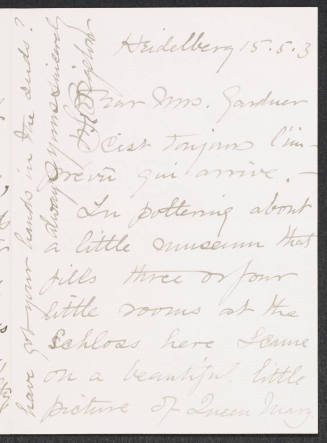 Heidelberg 15.5.3
Dear Mrs. Gardner
C'est toujours l'im-
prévu qui arrive. –
In pottering about
a little museum that
fills three or four
little rooms at the
Schloss here I came
on a beautiful little
picture of Queen Mary
have got your hands in the suds?
always yours sincerely